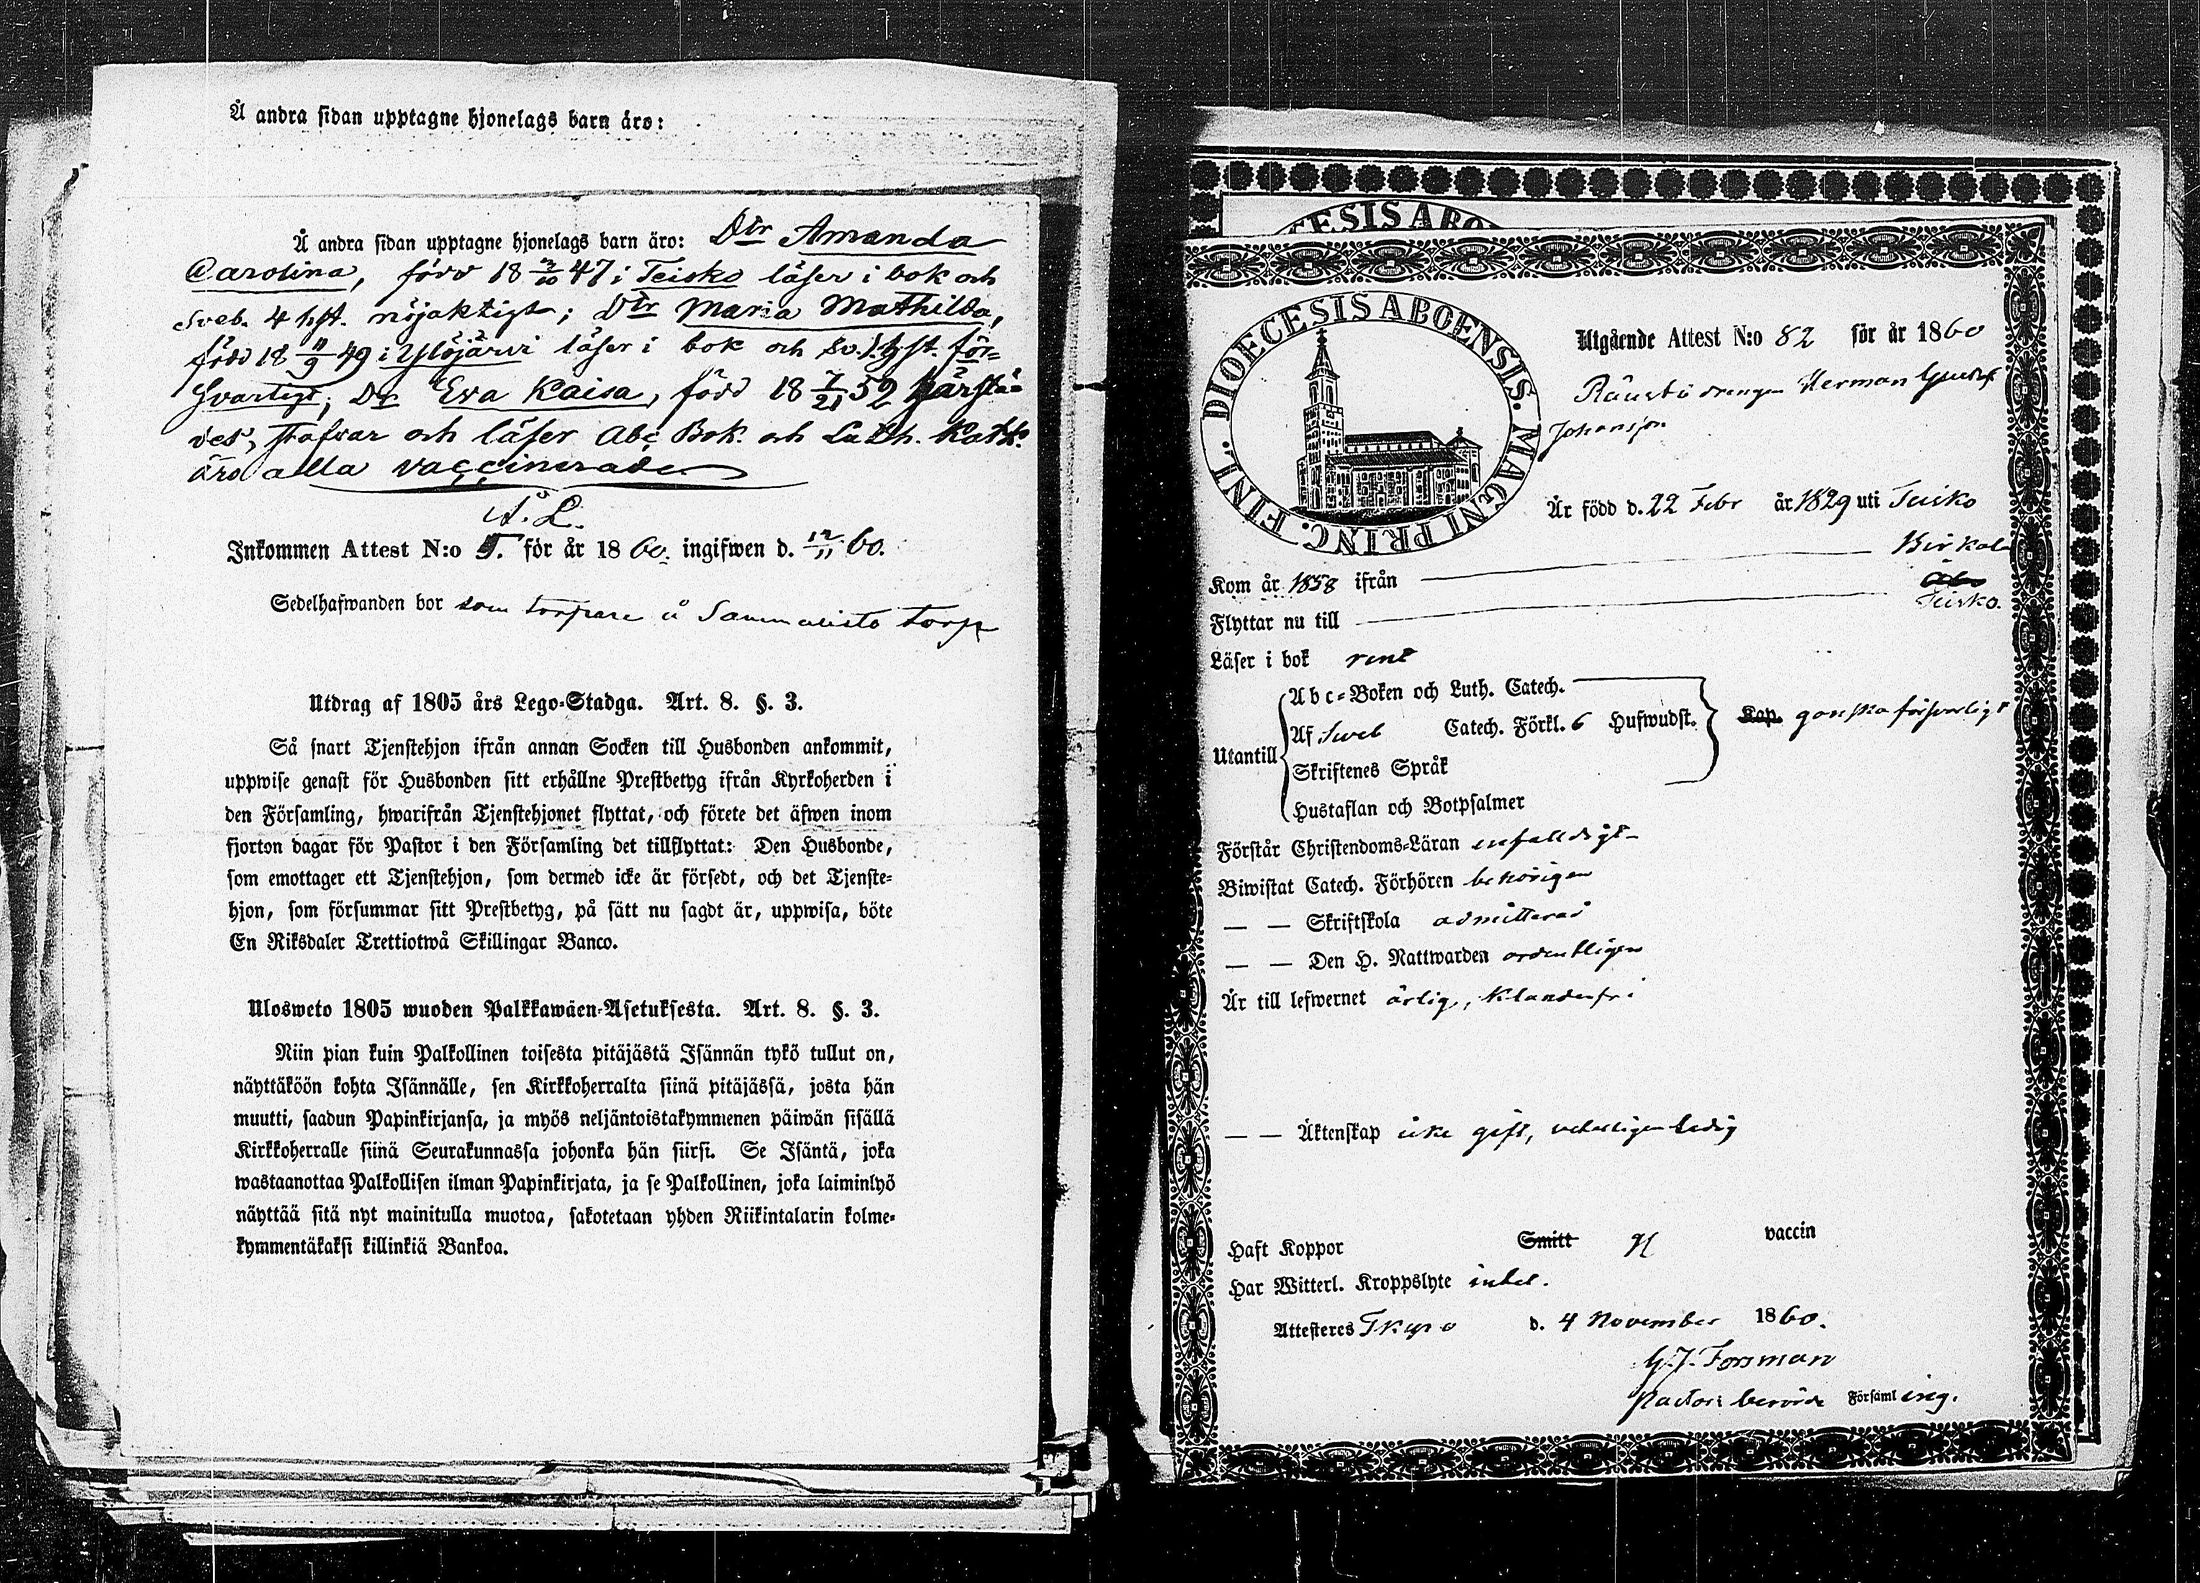 Å andra sidan upptagne hjonelags barn äro:
Å andra sidan upptagne hjonelags barn äro: Dtr Amanda
Carolina, född 18 2/10 47 i Teisko läser i bok och
Sveb. 4 hft. nöjaktigt; Dtr Maria Mathilda,
född 18 11/9 49 i Ylöjärvi läser i bok och Sv. hft. för=
svarligt; Dr Eva Kaisa, född 18 7/21 52
och läser Abc Bok. och Luth. Kat.
äro alla vaccinerade
A. L.
Inkommen Attest N:o 5. för år 1860. ingifwen d. 12/11 60.
Sedelhafwanden bor som torpare å torp
Utdrag af 1805 års Lego-Stadga. Art. 8. §. 3.
Så snart Tjenstehjon ifrån annan Socken till Husbonden ankommit,
uppwise genast för Husbonden sitt erhållne Prestbetyg ifrån Kyrkoherden i
den Församling, hwarifrån Tjenstehjonet flyttat, och förete det äfwen inom
fjorton dagar för Pastor i den Församling det tillflyttat: Den Husbonde,
som emottager ett Tjenstehjon, som dermed icke är försedt, och det Tjenste=
hjon, som försummar sitt Prestbetyg, på sätt nu sagdt är, uppwisa, böte
En Riksdaler Trettiotwå Skillingar Banco.
Ulosweto 1805 wuoden Palkkawäen-Asetuksesta. Art. 8. §. 3.
Niin pian kuin Palkollinen toisesta pitäjästä Isännän tykö tullut on,
näyttäköön kohta Isännälle, sen Kirkkoherralta siinä pitäjässä, josta hän
muutti, saadun Papinkirjansa, ja myös neljäntoistakymmenen päiwän sisällä
Kirkkoherralle siinä Seurakunnassa johonka hän siirsi. Se Isäntä, joka
wastaanottaa Palkollisen ilman Papinkirjata, ja se Palkollinen, joka laiminlyö
näyttää sitä nyt mainitulla muotoa, sakotetaan yhden Riikintalarin kolme=
kymmentäkaksi killinkiä Bankoa.
DIOECESIS ABOENSIS. MAGNI PRINC. FINL.
Utgående Attest N:o 82 för år 1860
drengen Herman Gustaf
Johansson
Är född d. 22 Febr år 1829 uti Teisko
Kom år 1858 ifrån Birkala
Flyttar nu till Åbo Teisko.
Läser i bok rent
Utantill
Abc=Boken och Luth. Catech.
Af Sveb Catech. Förkl. 6 Hufwudst. Kap. ganska försvarligt
Skriftenes Språk
Hustaflan och Botpsalmer
Förstår Christendoms=Läran enfalldigt
Biwistat Catech. Förhören behörigen
— — Skriftskola admitterad
— — Den H. Nattwarden ordentligen
Är till lefwernet ärlig, klanderfri
— — Äktenskap icke gift, ledig
Haft Koppor Smitt vaccin
Har Witterl. Kroppslyte intet.
Attesteres Tkyro d. 4 November 1860.
G. J. Forsman
Pastor i berörde Församling.